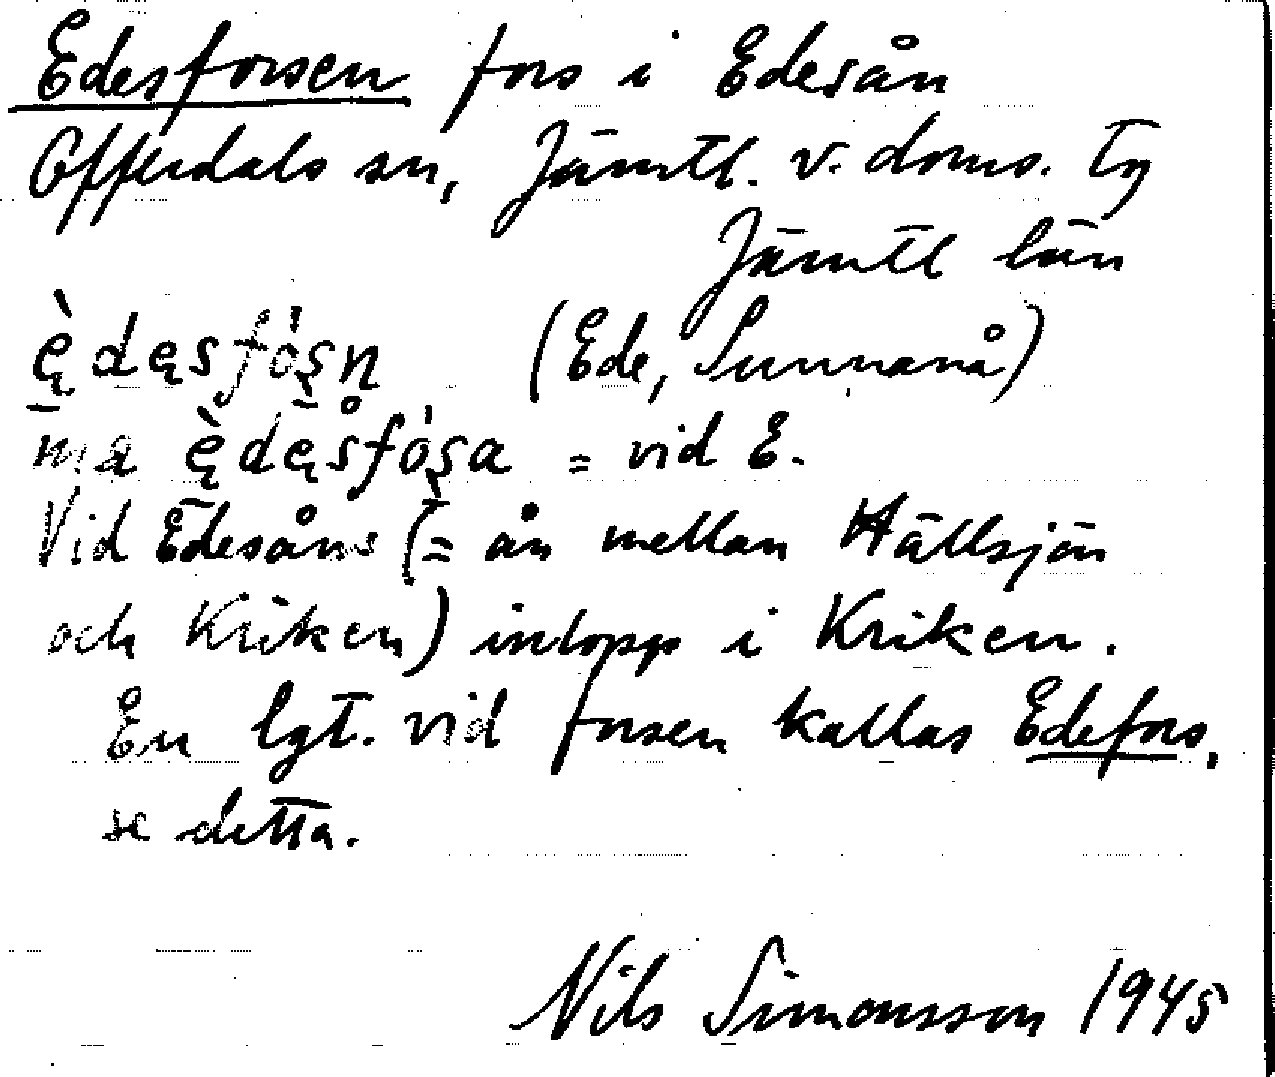 Edesforsen fors i Edesån
Offerdals sn, Jämtl. v. doms. tg
Jämtl län
ę̀dęsfóşn (Ede, Sunnanå)
ma ę̀dęs̊fóşa = vid E.
Vid Edesåns (= ån mellan Hällsjön
och Kriken) inlopp i Kriken.
En lgt. vid forsen kallas Edefors,
se detta.
Nils Simonsson 1945